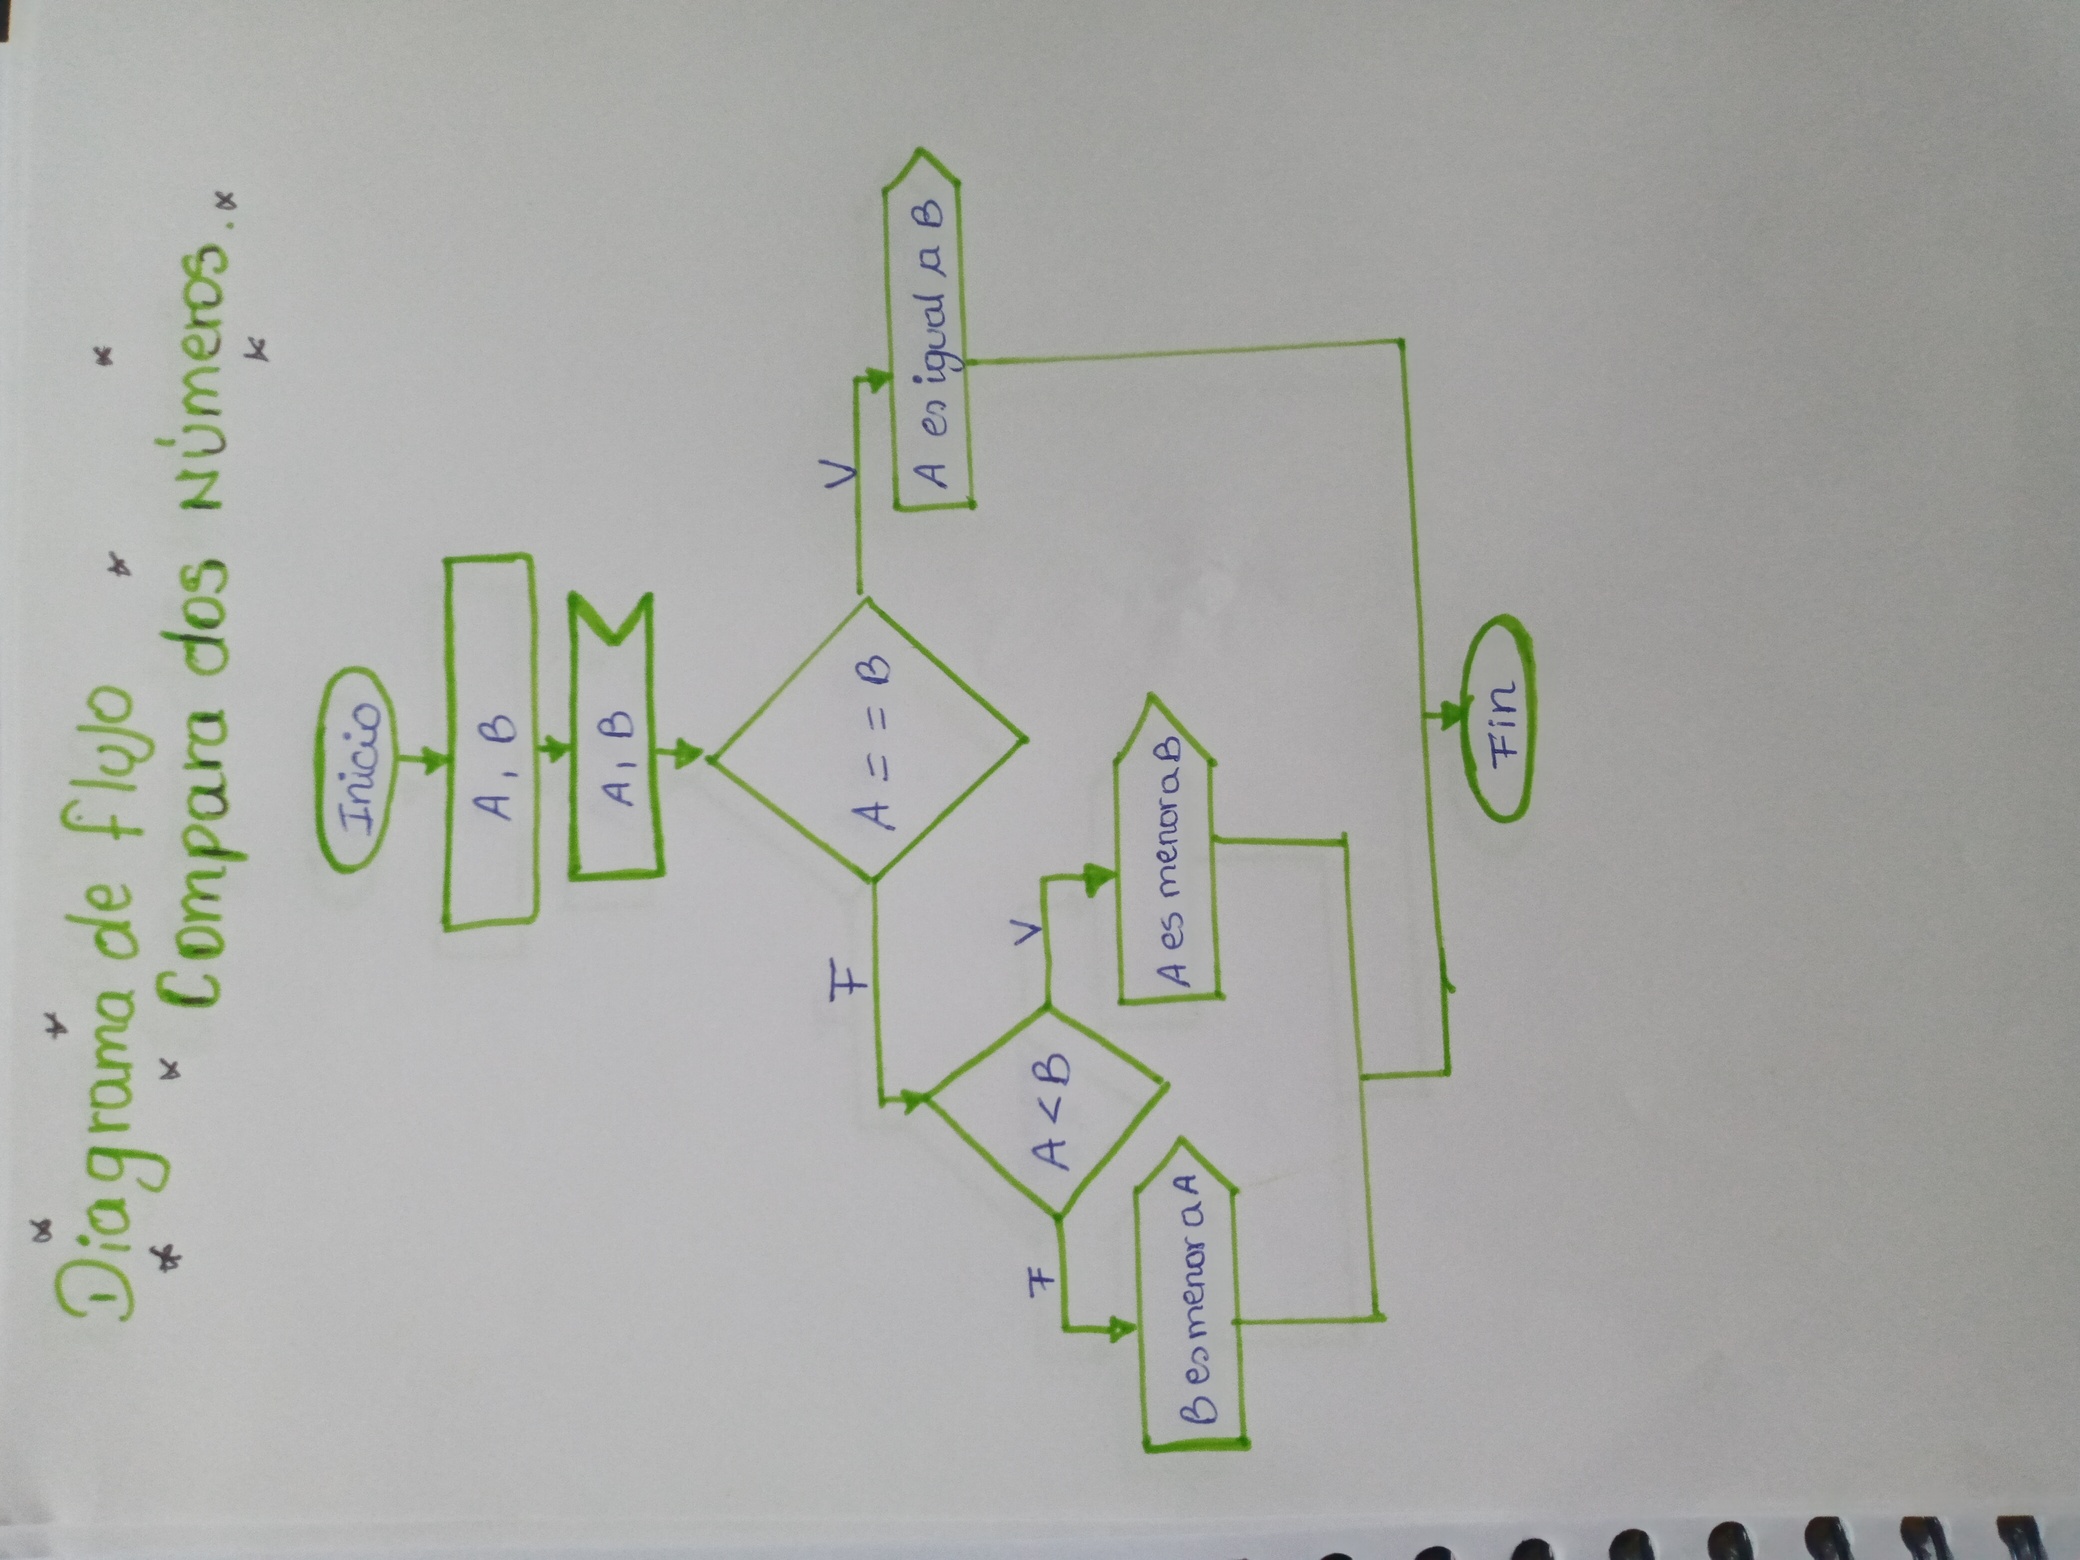 Diagrama de flujo
Compara dos Números.
Inicio
A, B
A, B
A = = B
F
V
A es igual a B
A < B
F
V
B es menor a A
A es menor a B
Fin